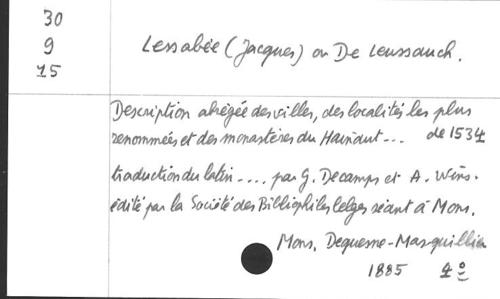 30
9
15
Lessabée (Jacques) ou De Leussauch.
Description abrégée des villes, des localités les plus
renommées et des monastères du Hainaut... de 1534
traduction du latin .... par G. Decamps et A. Wins.
édité par la Société des Bibliophiles belges séant à Mons.
Mons, Dequesne-Masquillier
1885 4º